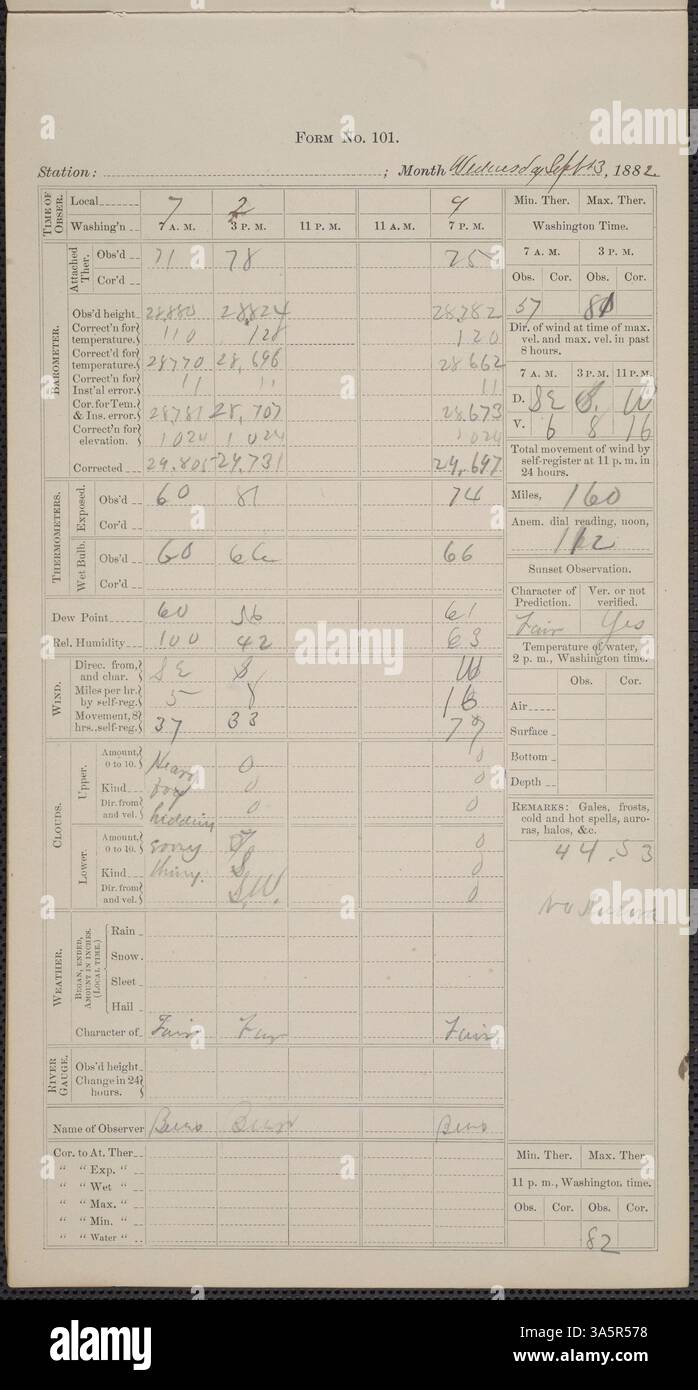 FORM NO. 101.
Station: ; Month Wednesday Sept 13, 1882.
TIME OF OBSER. Local 7 2 9
Washing'n 7 A. M. 3 P. M. 11 P. M. 11 A. M. 7 P. M.
Attached Ther. Obs'd 71 78 75
Cor'd
BAROMETER.
Obs'd height 28.880 28.824 28.782
Correct'n for temperature. 110 128 120
Correct'd for temperature. 28770 28,696 28 662
Correct'n for Inst'al error. 11 11 11
Cor. for Tem. & Ins. error. 28781 28,707 28,673
Correct'n for elevation. 1024 1 024 1024
Corrected 29.805 29,731 29,697
THERMOMETERS.
Exposed. Obs'd 60 81 74
Cor'd
Wet Bulb. Obs'd 60 66 66
Cor'd
Dew Point 60 56 61
Rel. Humidity 100 42 63
WIND.
Direc. from, and char. SE S. W
Miles per hr. by self-reg. 5 8
Movement, 8 hrs., self-reg. 37 33 77
CLOUDS.
Upper. Amount, 0 to 10. Heavy 0 0
Kind fog 0 0
Dir. from and vel. hedding 0 0
Lower. Amount, 0 to 10. 7. 0
Kind thing. S. 0
Dir. from and vel. S.W. 0
WEATHER.
BEGAN, ENDED, AMOUNT IN INCHES. (LOCAL TIME.)
Rain
Snow
Sleet
Hail
Character of Fair Fair Fair
RIVER GAUGE.
Obs'd height
Change in 24 hours.
Name of Observer
Cor. to At. Ther.
" " Exp. "
" " Wet "
" " Max. "
" " Min. "
" " Water "
Min. Ther. Max. Ther.
Washington Time.
7 A. M. 3 P. M.
Obs. Cor. Obs. Cor.
57 81
Dir. of wind at time of max. vel. and max. vel. in past 8 hours.
7 A. M. 3 P. M. 11 P. M.
D. SE S. W
V. 6 8 16
Total movement of wind by self-register at 11 p. m. in 24 hours.
Miles, 160
Anem. dial reading, noon,
112
Sunset Observation.
Character of Prediction. Ver. or not verified.
Fair Yes
Temperature of water, 2 p. m., Washington time.
Obs. Cor.
Air
Surface
Bottom
Depth
REMARKS: Gales, frosts, cold and hot spells, auroras, halos, &c.
44.53
Min. Ther. Max. Ther.
11 p. m., Washington time.
Obs. Cor. Obs. Cor.
82
NWDNS 3A5R578